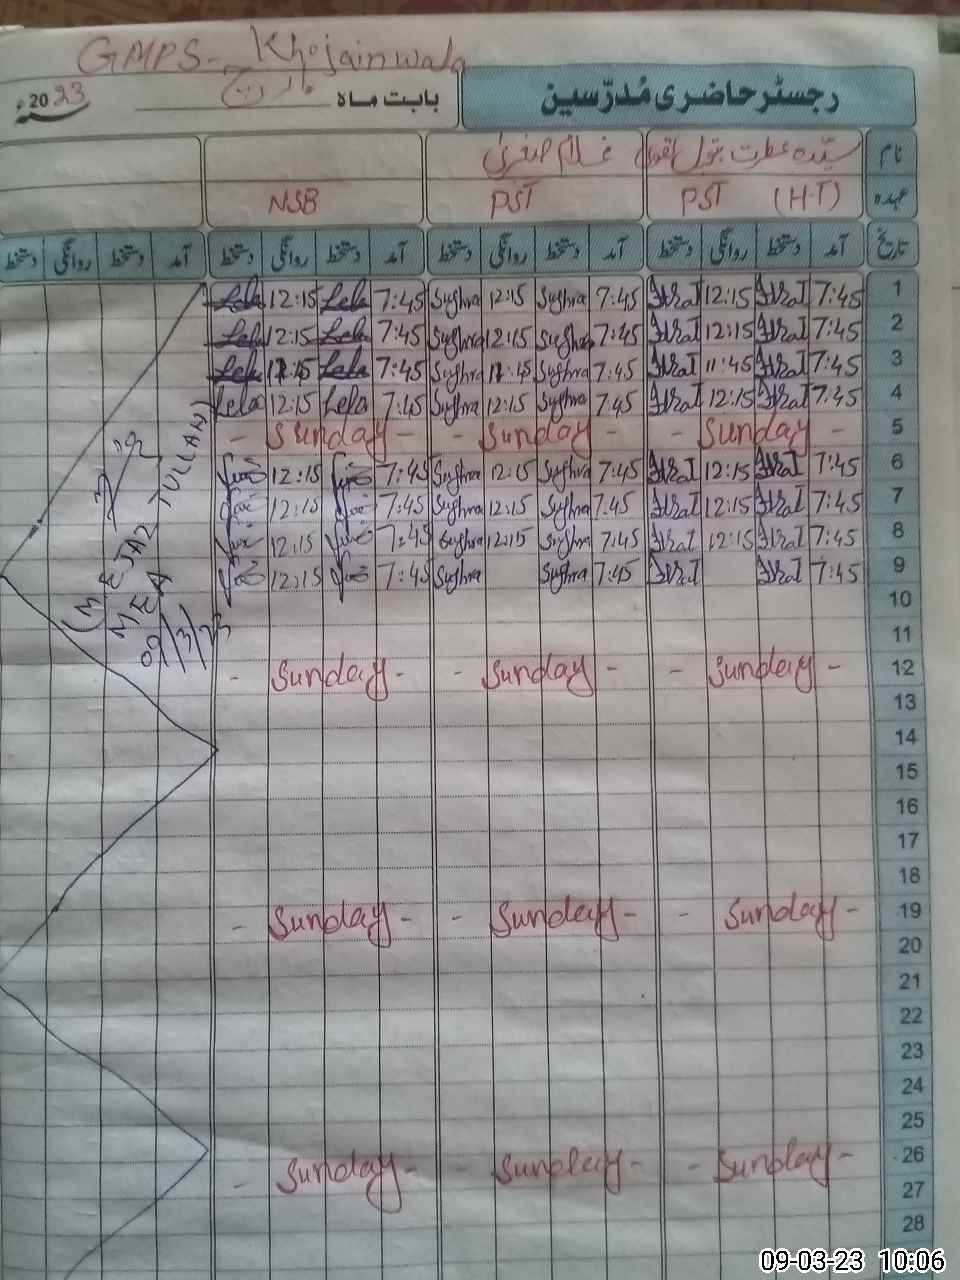 GMPS - Khojainwala
رجسٹر حاضری مُدرّسین
بابت ماہ مارچ 2023ء
نام سیّدہ عطرت بتول نقوی غلام صغریٰ
عہدہ PST (H.T) PST NSB
تاریخ آمد دستخط روانگی دستخط آمد دستخط روانگی دستخط آمد دستخط روانگی دستخط آمد دستخط روانگی دستخط
1 7:45 ItraT 12:15 ItraT 7:45 Sughra 12:15 Sughra 7:45 Lela 12:15 Lela
2 7:45 ItraT 12:15 ItraT 7:45 Sughra 12:15 Sughra 7:45 Lela 12:15 Lela
3 7:45 ItraT 11:45 ItraT 7:45 Sughra 11:45 Sughra 7:45 Lela 11:45 Lela
4 7:45 ItraT 12:15 ItraT 7:45 Sughra 12:15 Sughra 7:45 Lela 12:15 Lela
5 - Sunday - - Sunday - - Sunday -
6 7:45 ItraT 12:15 ItraT 7:45 Sughra 12:15 Sughra 7:45 12:15
7 7:45 ItraT 12:15 ItraT 7:45 Sughra 12:15 Sughra 7:45 12:15
8 7:45 ItraT 12:15 ItraT 7:45 Sughra 12:15 Sughra 7:45 12:15
9 7:45 ItraT ItraT 7:45 Sughra Sughra 7:45 12:15
10
11
12 - Sunday - - Sunday - - Sunday -
13
14
15
16
17
18
19 - Sunday - - Sunday - - Sunday -
20
21
22
23
24
25
26 - Sunday - - Sunday - - Sunday -
27
28
(M EJAZ TULLAH)
MEA
09/3/23
09-03-23 10:06